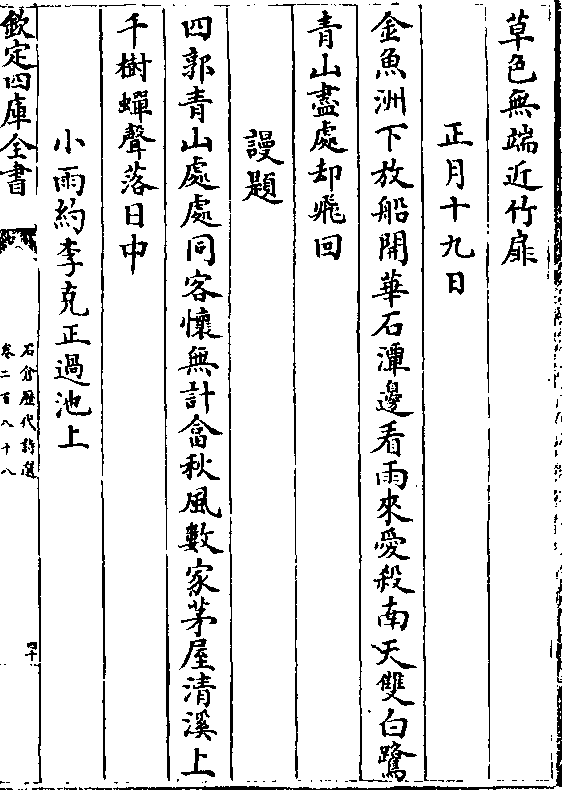 草色無端近竹扉
正月十九日
金魚洲下放船開華石潭邊看雨來愛殺南天雙白鷺
青山盡處却飛回
謾題
四郭青山處處同客懷無計畣秋風數家茅屋清溪上
千樹蟬聲落日中
小雨約李克正過池上
欽定四庫全書
石倉歷代詩選
卷二百八十八
四十